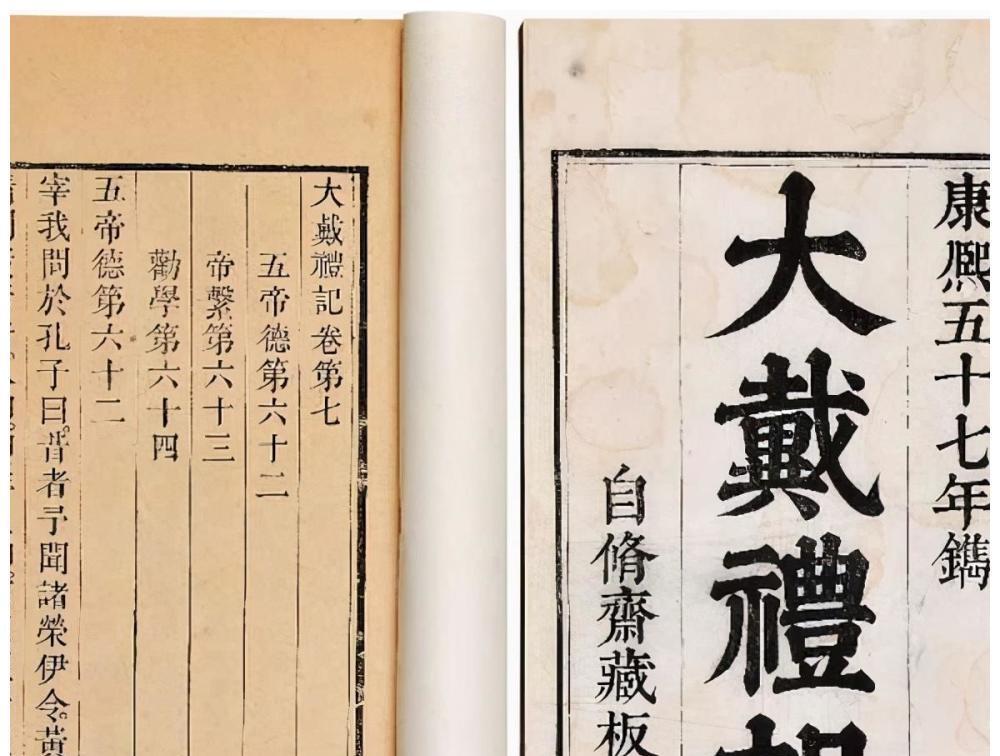 康熙五十七年鐫
大戴禮
自脩齋藏板
大戴禮記卷第七
五帝德第六十二
帝繫第六十三
勸學第六十四
五帝德第六十二
宰我問於孔子曰。昔者予聞諸榮伊令。黃